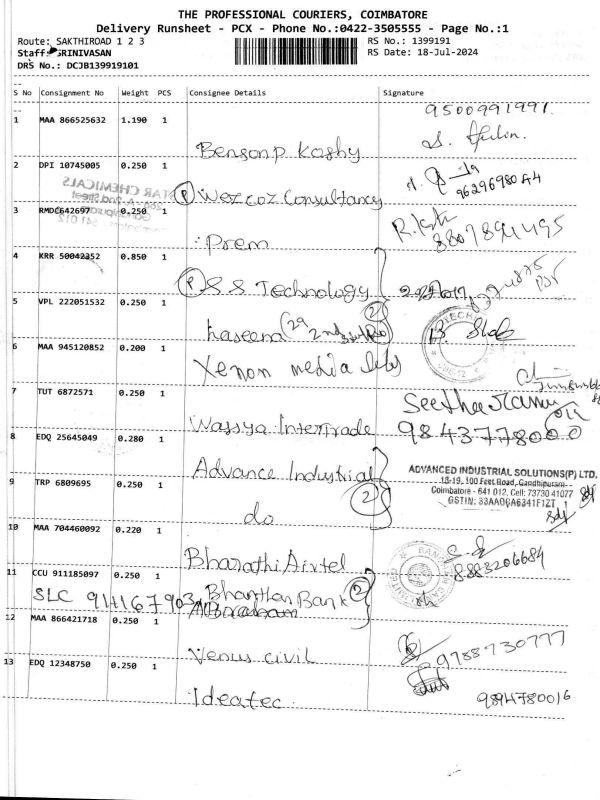 THE PROFESSIONAL COURIERS, COIMBATORE
Delivery Runsheet - PCX - Phone No.:0422-3505555 - Page No.:1
Route: SAKTHIROAD 1 2 3
RS No.: 1399191
Staff: SRINIVASAN
RS Date: 18-Jul-2024
DRS No.: DCJB139919101
S No Consignment No Weight PCS Consignee Details Signature
9500991991.
1 MAA 866525632 1.190 1
Benson p Koshy
2 DPI 10745005 0.250 1
STAR CHEMICALS
P Wezcoz Consultancy
3 RMDC642697 0.250 1
641 012
Prem
8807894495
4 KRR 50042352 0.850 1
P S S Technology
5 VPL 222051532 0.250 1
2
haseena
6 MAA 945120852 0.200 1
Xenon media labs
7 TUT 6872571 0.250 1
Seetharamu
Waysya Intertrade
9843778000
8 EDQ 25645049 0.280 1
Advance Industrial
ADVANCED INDUSTRIAL SOLUTIONS(P) LTD.
13-19, 100 Feet Road, Gandhipuram
9 TRP 6809695 0.250 1
2
Coimbatore - 641 012, Cell: 73730 41077
do
10 MAA 704460092 0.220 1
Bharathi Airtel
8883206684
11 CCU 911185097 0.250 1
SLC 911167903 Bharathan Bank 2
12 MAA 866421718 0.250 1
Venus civil
9788730777
13 EDQ 12348750 0.250 1
Ideatec
9894780016